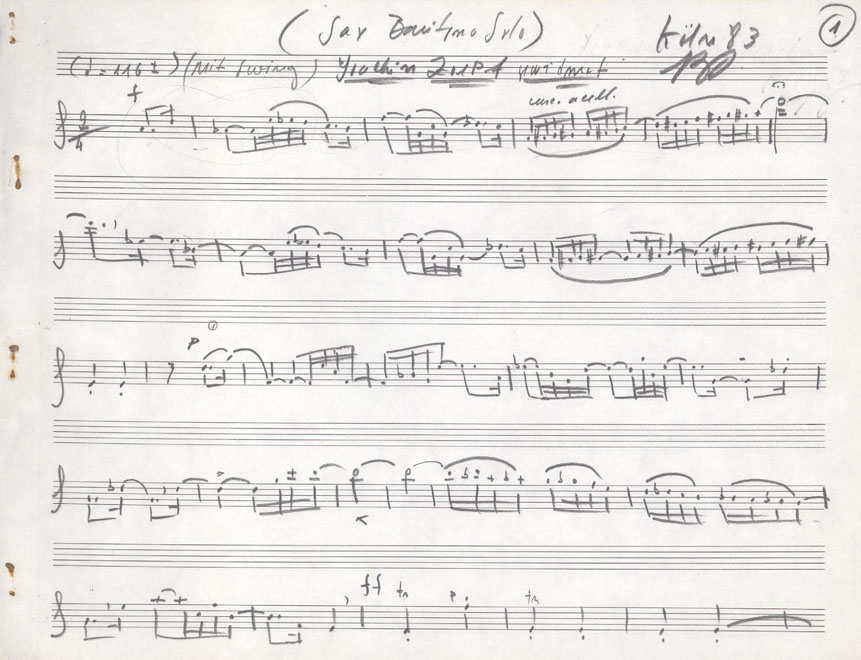 (Sax Baritono Solo) Köln 83 1
(♩= 116 ±) (mit swing) Joachim gewidmet
f
unc. acell.
p 1
ff tr p tr